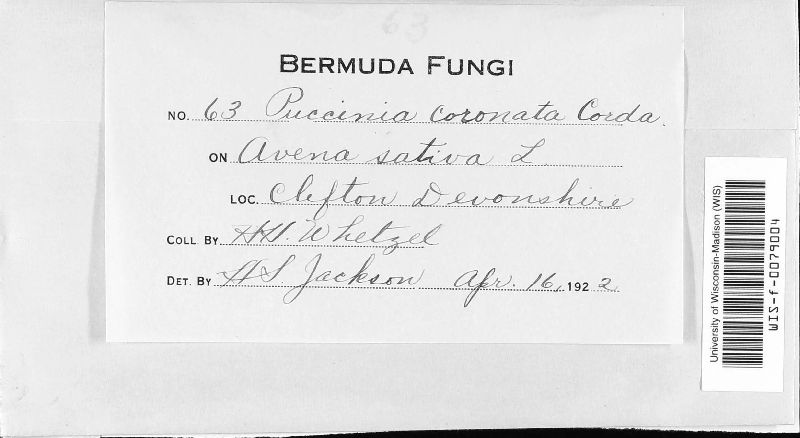 63
BERMUDA FUNGI
NO. 63 Puccinia coronata Corda.
ON Avena sativa L
LOC. Clefton Devonshire
COLL. BY HH. Whetzel
DET. BY HS Jackson Apr. 16, 1922
University of Wisconsin-Madison (WIS)
WIS-f-0079004